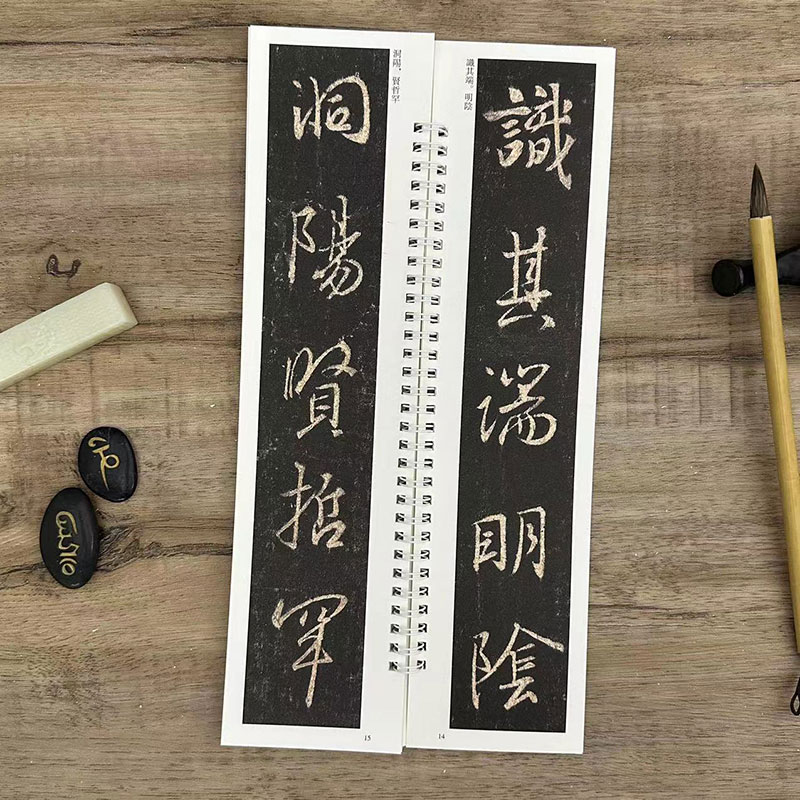 識其端。明陰
識其端明陰
14
洞陽，賢哲罕
洞陽賢哲罕
15